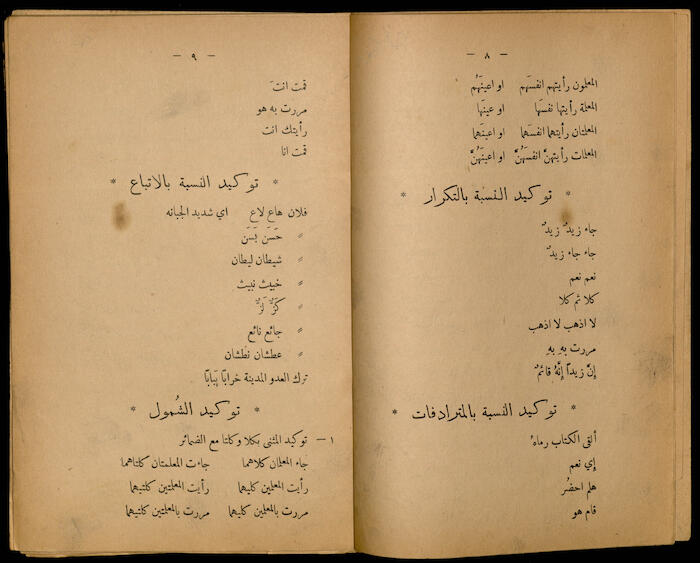 — ٨ —
المعلمون رأيتهم انفسَهم او اعينَهُم
المعلمة رأيتها نفسَها او عينَها
المعلمتان رأيتهما انفسَهما او اعينَهما
المعلمات رأيتهنَّ انفسَهُنَّ او اعينَهُنَّ
* توكيد النسبة بالتكرار *
جاء زيدٌ زيدٌ
جاء جاء زيدٌ
نعم نعم
كلا ثم كلا
لا اذهب لا اذهب
مررت بهِ بهِ
إنَّ زيداً إنَّهُ قائمٌ
* توكيد النسبة بالمترادفات *
ألقى الكتاب رماهُ
إي نعم
هلم احضُر
قام هو
— ٩ —
قمت انتَ
مررت به هو
رأيتك انت
قمت انا
* توكيد النسبة بالاتباع *
فلان هاع لاع اي شديد الجبانه
〃 حَسَن بَسَن
〃 شيطان ليطان
〃 خبيث نبيث
〃 كَزٌّ لَزٌّ
〃 جائع نائع
〃 عطشان نطشان
ترك العدو المدينة خرابًا يَبابًا
* توكيد الشُمول *
١ — توكيد المثنى بكلا وكلتا مع الضمائر
جاء المعلمان كلاهما جاءت المعلمتان كلتاهما
رأيت المعلمين كليهما رأيت المعلمتين كلتيهما
مررت بالمعلمين كليهما مررت بالمعلمتين كلتيهما